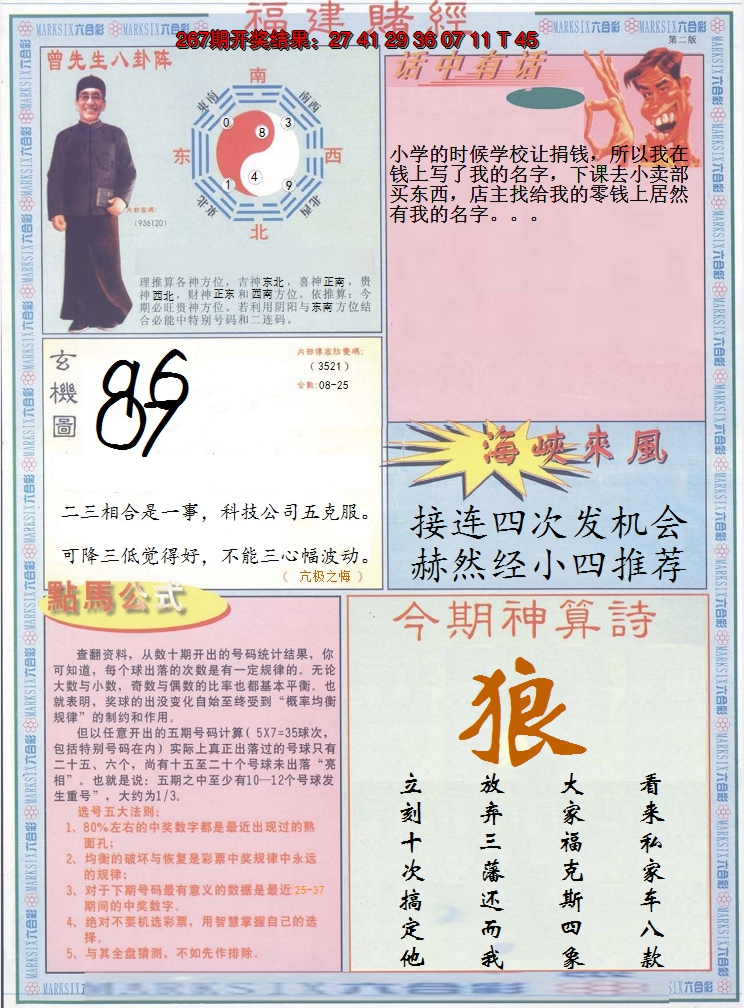 福建賭經
267期开奖结果：27 41 29 36 07 11 T 45
MARKSIX六合彩 MARKSIX六合彩 MARKSIX六合彩 MARKSIX六合彩 MARKSIX六合彩 MARKSIX六合彩
第二版
曾先生八卦阵
南
東南
南西
0
8
3
东
西
1
4
9
東北
北西
北
内部密碼：
（936120）
理推算各神方位，吉神东北，喜神正南，贵
神西北，财神正东和西南方位。依推算：今
期必旺贵神方位。若利用阴阳与东南方位结
合必能中特别号码和二连码。
话中有话
小学的时候学校让捐钱，所以我在
钱上写了我的名字，下课去小卖部
买东西，店主找给我的零钱上居然
有我的名字。。。
玄機圖
（3521）
合数:08-25
二三相合是一事，科技公司五克服。
可降三低觉得好，不能三心幅波动。
（ 亢极之悔 ）
海峽來風
接连四次发机会
赫然经小四推荐
點馬公式
查翻资料，从数十期开出的号码统计结果，你
可知道，每个球出落的次数是有一定规律的。无论
大数与小数，奇数与偶数的比率也都基本平衡。也
就表明，奖球的出没变化自始至终受到“概率均衡
规律”的制约和作用。
但以任意开出的五期号码计算( 5X7=35球次，
包括特别号码在内) 实际上真正出落过的号球只有
二十五、六个，尚有十五至二十个号球未出落“亮
相”。也就是说：五期之中至少有10—12个号球发
生重号”，大约为1/3。
选号五大法则：
1、80%左右的中奖数字都是最近出现过的熟
面孔；
2、均衡的破坏与恢复是彩票中奖规律中永远
的规律；
3、对于下期号码最有意义的数据是最近25-37
期间的中奖数字。
4、绝对不要机选彩票，用智慧掌握自己的选
择。
5、与其全盘猜测，不如先作排除。
今期神算詩
狼
看来私家车八款
大家福克斯四象
放弃三藩还而我
立刻十次搞定他